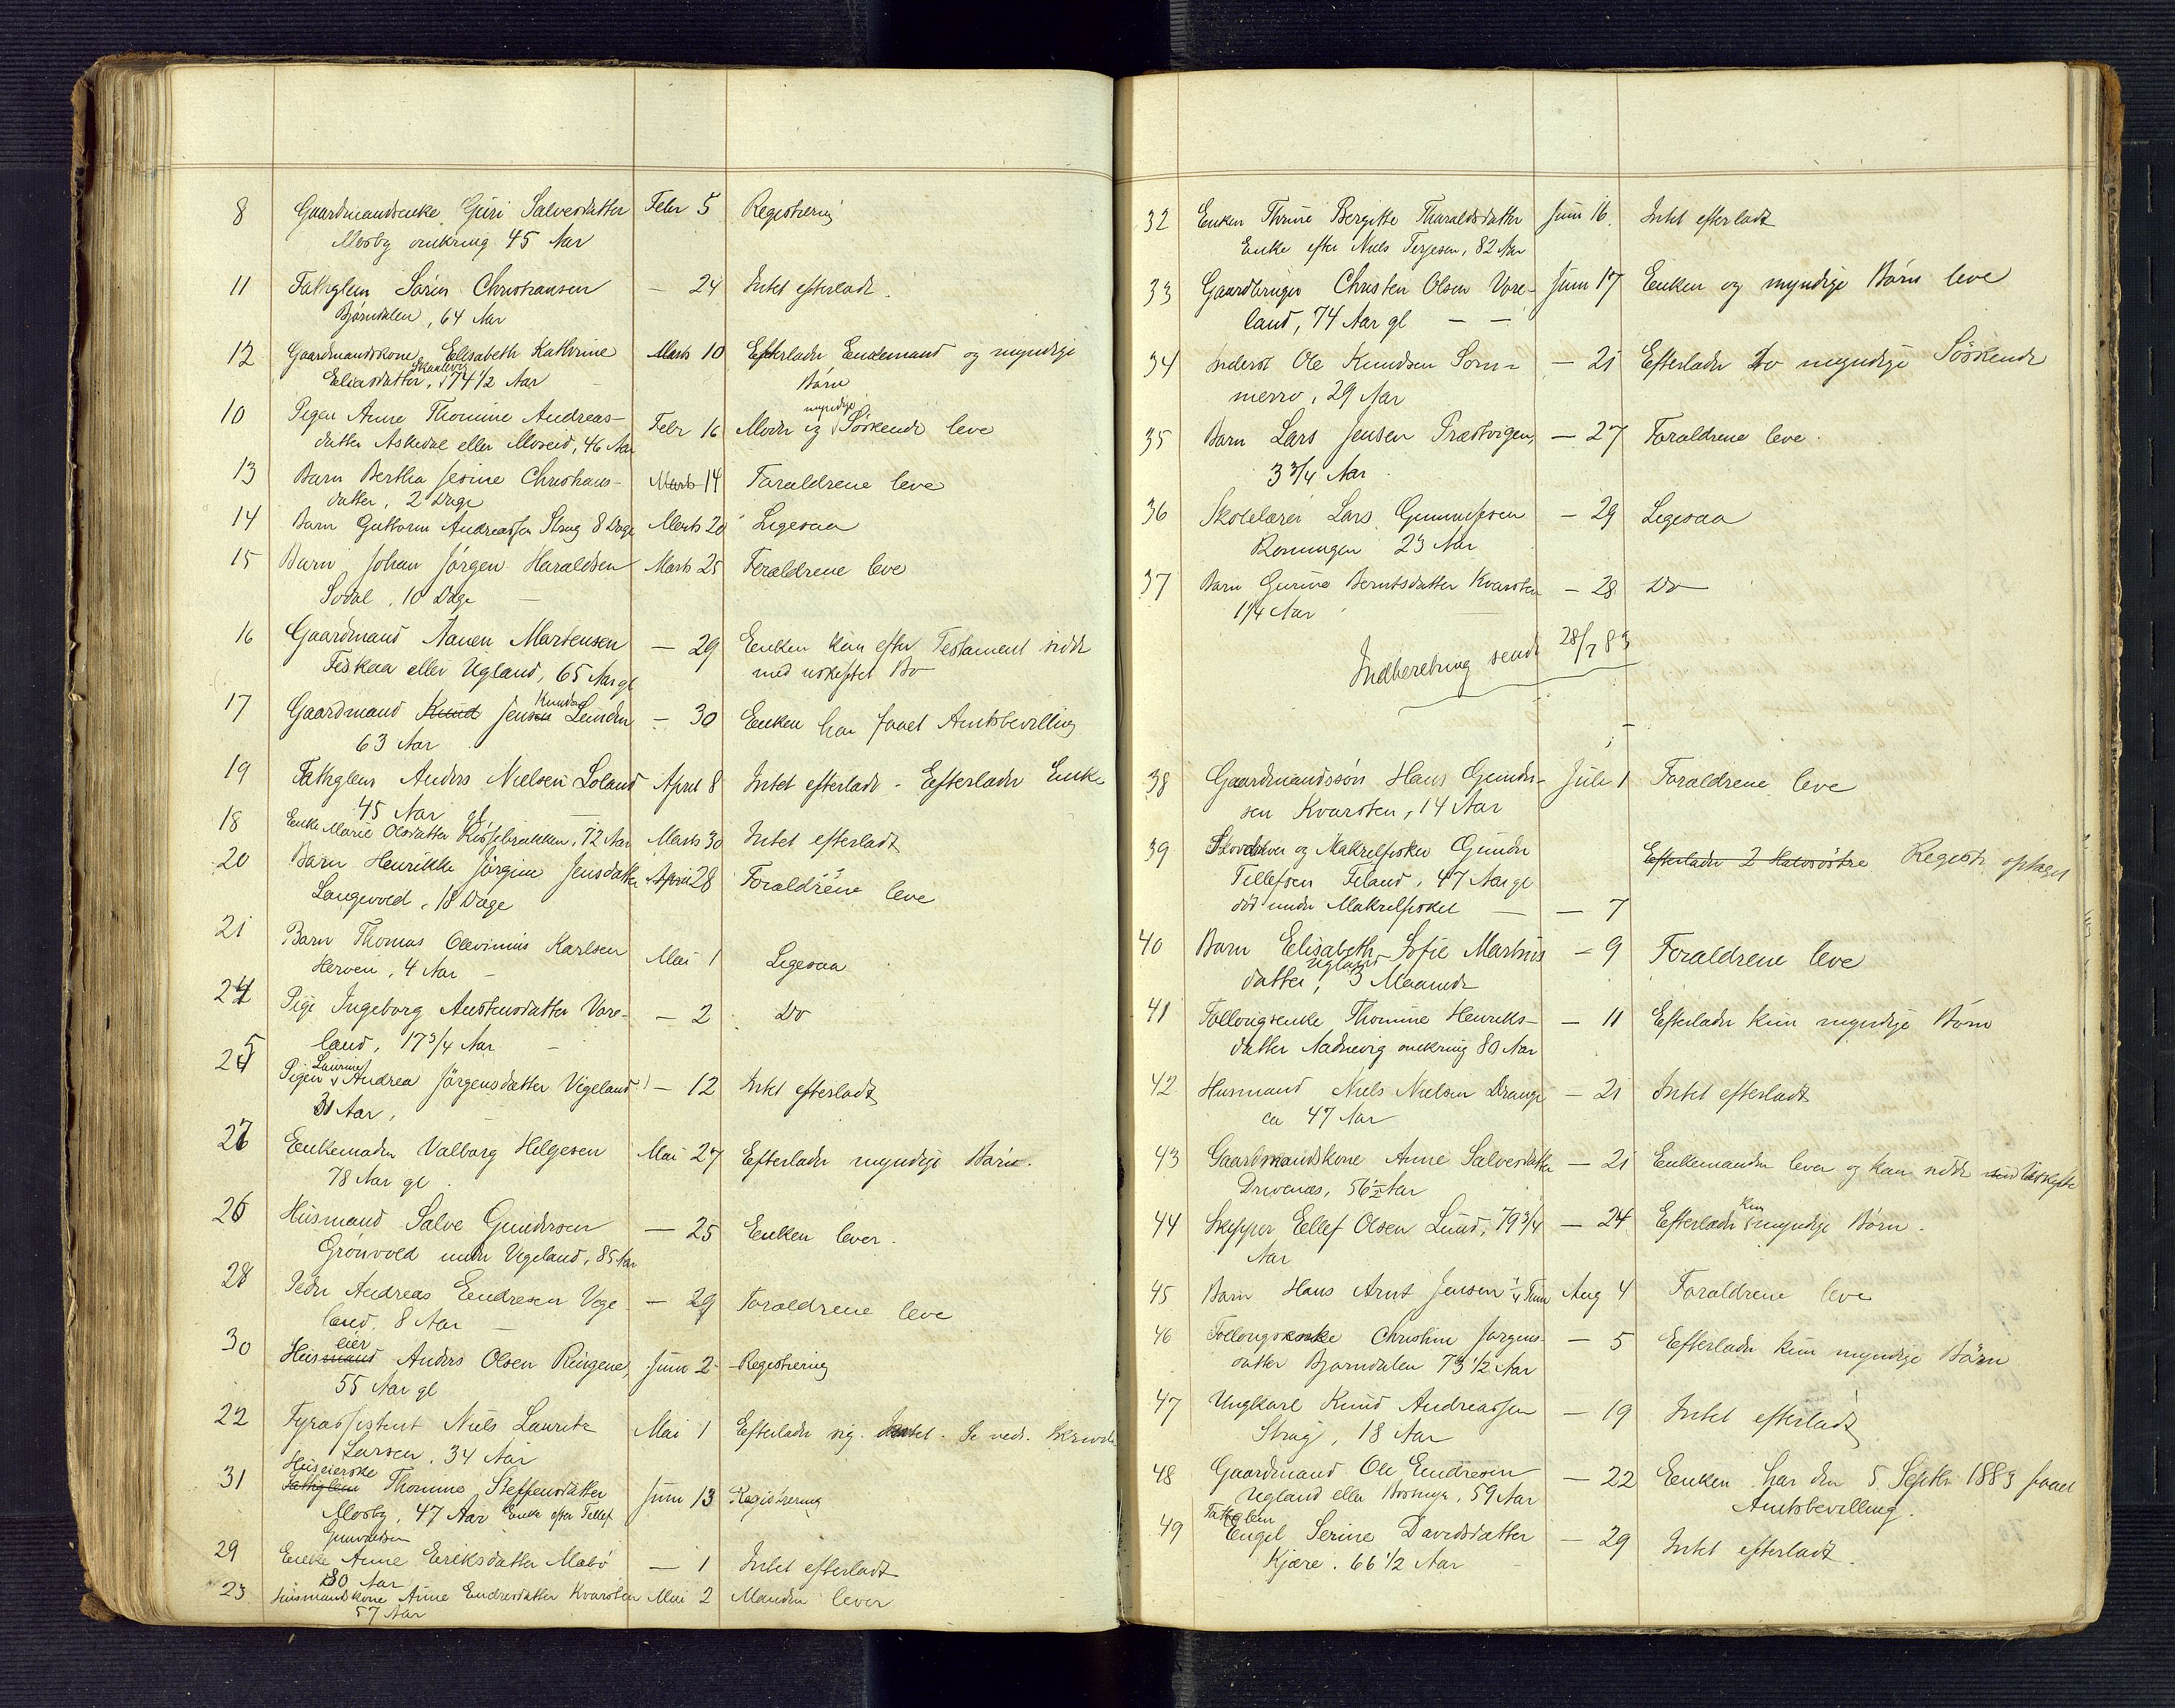 8 Gaardmandsenke Guri Salvesdatter Febr 5 Registrering
Mosby omkring 45 Aar
11 Fattiglem Sören Christiansen — 24 Intet efterladt.
Bjørndalen, 64 Aar
12 Gaardmandskone Elisabeth Kathrine Marts 10 Efterlader Enkemand og myndige
Eliasdatter, 74 1/2 Aar Börn
10 Pigen Anne Thomine Andreas- Febr 16 Moder og myndige Söskende leve
datter Askedal eller Moseid, 46 Aar
13 Barn Bertha Jesine Christians- Marts 14 Forældrene leve
datter, 2 Dage
14 Barn Guttorm Andreassen Stray 8 Dage Marts 20 Ligesaa
15 Barn Johan Jörgen Haraldsen Marts 25 Forældrene leve
Sodal, 10 Dage
16 Gaardmand Aanen Martensen — 29 Enken kan efter Testament sidde
Fiskaa eller Ugland, 65 Aar gl med uskiftet Bo
17 Gaardmand Knud Jens Knudsen — 30 Enken har faaet Amtsbevilling
63 Aar
19 Fattiglem Anders Nielsen Loland April 8 Intet efterladt - Efterlader Enke
45 Aar gl.
18 Enke Marie Olsdatter 72 Aar Marts 30 Intet efterladt
20 Barn Henrikke Jörgine Jensdatter April 28 Forældrene leve
Langevold, 18 Dage
21 Barn Thomas Olevinius Karlsen Mai 1 Ligesaa
4 Aar
24 Pige Ingeborg Austensdatter Vore- — 2 Do
land, 17 3/4 Aar
25 Pigen Laurine Andrea Jörgensdatter Vigeland — 12 Intet efterladt
31 Aar,
27 Enkemadm Valborg Helgesen Mai 27 Efterlader myndige Børn.
78 Aar gl.
26 Husmand Salve Gundersen — 25 Enken lever.
Grönvold under Vegeland, 85 Aar
28 Peder Andreas Endresen Vege — 29 Forældrene leve
land. 8 Aar
30 Husmand eier Anders Olsen Ringene, Juni 2 Registrering
55 Aar gl
22 Fyrassistent Niels Lauritz Mai 1 Efterlader sig Intet. Se
Larsen, 34 Aar
Huseierske
31 Fattiglem Thomine Steffensdatter Juni 13 Registrering
Mosby, 47 Aar Enke efter Tellef
Gunvaldsen
29 Enke Anne Eriksdatter Mabö — 1 Intet efterladt
80 Aar
23 Husmandskone Anne Endresdatter Kvarsten Mai 2 Manden lever
57 Aar
32 Enken Thrine Bergitte Tharaldsdatter Juni 16. Intet efterladt
Enke efter Niels Terjesen, 82 Aar
33 Gaardbruger Christen Olsen Vore- Juni 17 Enken og myndige Börn leve
land, 74 Aar gl — —
34 Inderst Ole Knudsen Som- — 21 Efterlader To myndige Söskende
merro, 29 Aar
35 Barn Lars Jensen Præstvigen, — 27 Forældrene leve.
3 3/4 Aar.
36 Skolelærer Lars Gunnufsen — 29 Ligesaa
Roningen 23 Aar
37 Barn Gurine Berntsdatter Kvarsten — 28 Do
1 1/4 Aar
Indberetning sendt 28/7 83
38 Gaardmandssön Hans Gunder- Juli 1 Forældrene leve
sen Kvarsten, 14 Aar
39 og Makrelfisker Gunder Efterlader 2 Halvsöstre Registr optaget
Tellefsen Feland, 47 Aar gl
död under Makrelfisket — — 7
40 Barn Elisabeth Sofie Martins — 9 Forældrene leve
datter, Ugland 3 Maaneder
41 Follougsenke Thomine Henriks- — 11 Efterlader kun myndige Börn
datter Aadnevig omkring 80 Aar
42 Husmand Niels Nielsen Drange — 21 Intet efterladt
ca 47 Aar
43 Gaardmandskone Anne Salvesdatter — 21 Enkemanden lever og kan sidde
Drivenæs, 56 1/2 Aar
44 Skipper Ellef Olsen Lund, 79 3/4 — 24 Efterlader kun myndige Börn.
Aar
45 Barn Hans Arnt Jensen 1/4 Time Aug 4 Forældrene leve
46 Follougsenke Christine Jørgens- — 5 Efterlader kun myndige Börn
datter Bjørndalen 73 1/2 Aar
47 Ungkarl Knud Andreassen — 19 Intet efterladt
Stray, 18 Aar
48 Gaardmand Ole Endresen — 22 Enken har den 5 Septbr 1883 faaet
Ugland eller 59 Aar Amtsbevilling.
Fattiglem
49 Engel Serine Davidsdatter — 29 Intet efterladt.
Kjære. 66 1/2 Aar